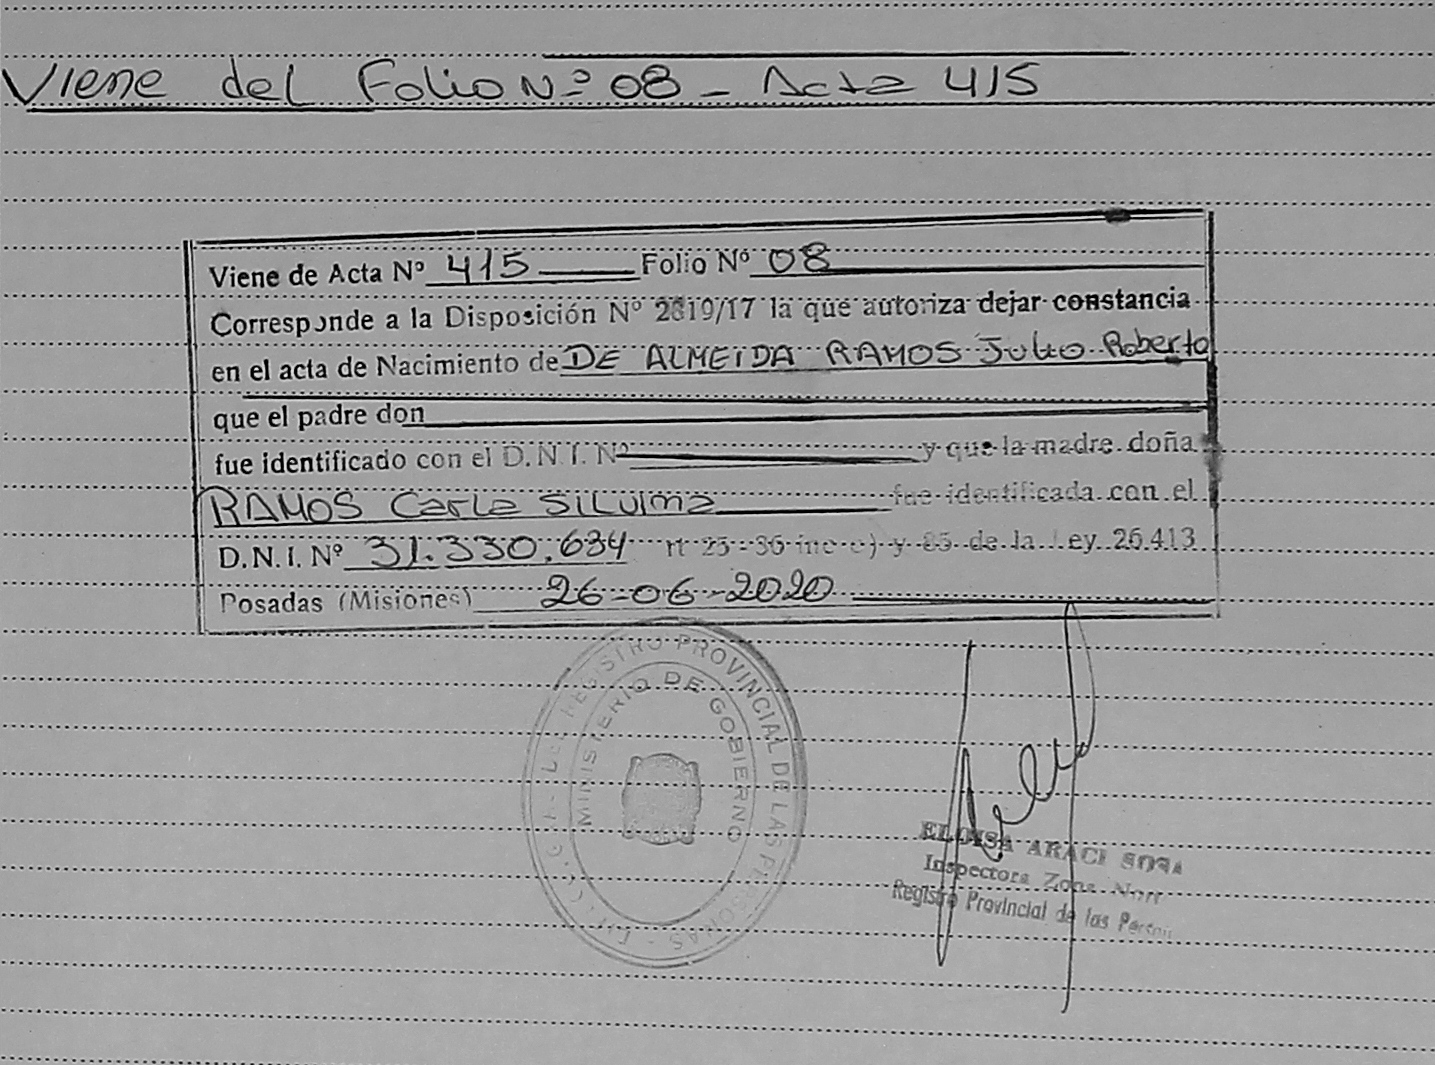 Viene del Folio Nº 08 - Acta 415
Viene de Acta Nº 415 Folio Nº 08
Corresponde a la Disposición Nº 2819/17 la que autoriza dejar constancia
en el acta de Nacimiento de DE ALMEIDA RAMOS Julio Roberto
que el padre don
fue identificado con el D.N.I. Nº y que la madre doña
RAMOS Carla SiLvina fue identificada con el
D.N.I. Nº 31.330.634 rt 25-36 inc e) y 85 de la Ley 26.413
Posadas (Misiones) 26-06-2020
REGISTRO PROVINCIAL DE LAS PERSONAS
MINISTERIO DE GOBIERNO
ELOISA ARACI SOSA
Inspectora Zona Nort
Registro Provincial de las Person